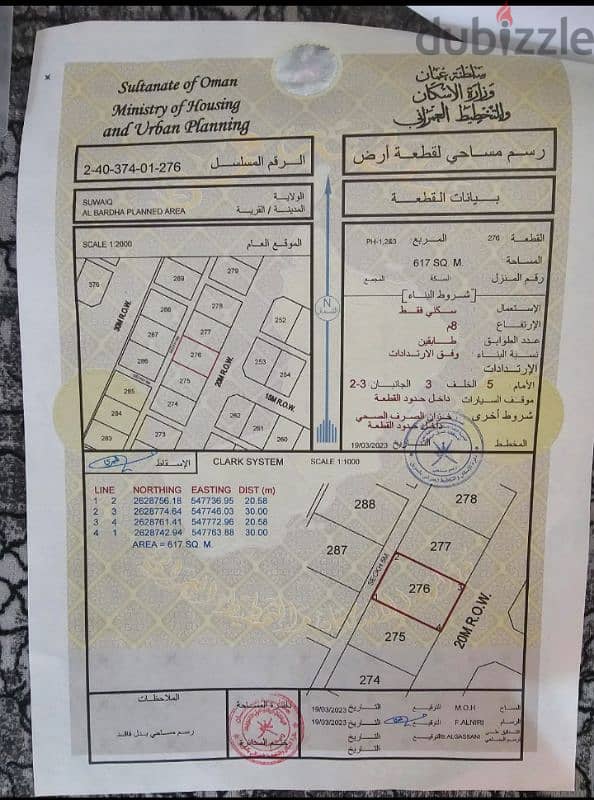 dubizzle
Sultanate of Oman
Ministry of Housing
and Urban Planning
سلطنة عمان
وزارة الإسكان
والتخطيط العمراني
2-40-374-01-276 الرقم المسلسل
رسم مساحي لقطعة أرض
SUWAIQ الولاية
AL BARDHA PLANNED AREA المدينة / القرية
بيانات القطعة
SCALE 1:2000 الموقع العام
القطعة 276 المربع PH-1,2&3
المساحة 617 SQ. M.
رقم المنزل السكة المجمع
شروط البناء
الإستعمال سكني فقط
الإرتفاع 8م
عدد الطوابق طابقين
نسبة البناء وفق الارتدادات
الإرتدادات
الأمام 5 الخلف 3 الجانبان 3-2
موقف السيارات داخل حدود القطعة
شروط أخرى خزان الصرف الصحي
داخل حدود القطعة
المخطط التاريخ 19/03/2023
376
289
279
288
278
287
277
252
286
276
275
253
254
285
274
284
262
283
261
260
30M R.O.W.
20M R.O.W.
15M R.O.W.
N
الشمال
الإسقاط CLARK SYSTEM SCALE 1:1000
LINE NORTHING EASTING DIST (m)
1 2 2628756.18 547736.95 20.58
2 3 2628774.64 547746.03 30.00
3 4 2628761.41 547772.96 20.58
4 1 2628742.94 547763.88 30.00
AREA = 617 SQ. M.
288
278
287
277
SECKH 5M
276
275
274
20M R.O.W.
الملاحظات
رسم مساحي بدل فاقد
دائرة المساحة
المساح M.O.H التوقيع التاريخ 19/03/2023
الرسام F.ALNIRI التوقيع التاريخ 19/03/2023
التدقيق على الرسم المساحي B.ALGASSANI التوقيع التاريخ
التاريخ